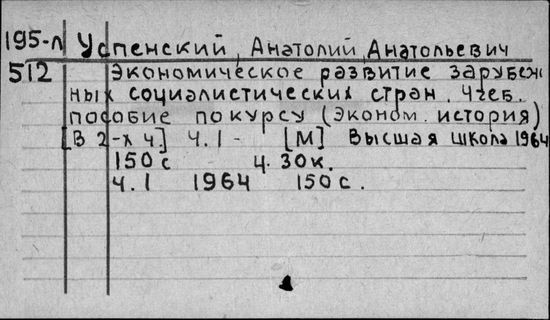 195-л Успенский, Анатолий Анатольевич
512 Экономическое развитие зарубеж
ных социалистических стран. Учеб.
пособие по курсу (Эконом. история)
[В 2-х ч.] Ч.1- [М] Высшая школа 1964
150 с ц. 30к.
Ч.1 1964 150 с.